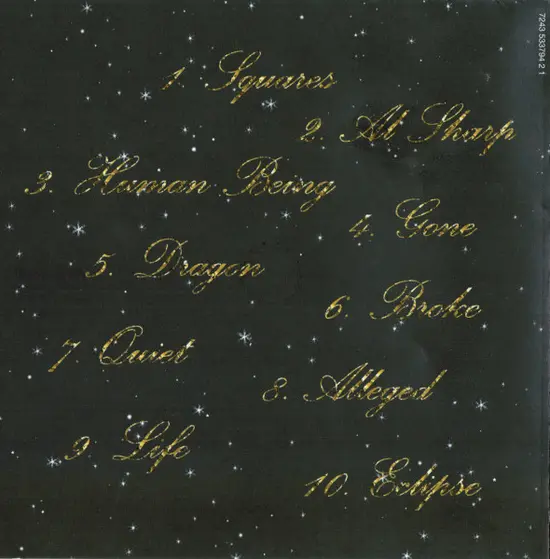 7243 533794 2 1
1. Squares
2. Al Sharp
3. Human Being
4. Gone
5. Dragon
6. Broke
7. Quiet
8. Alleged
9. Life
10. Eclipse